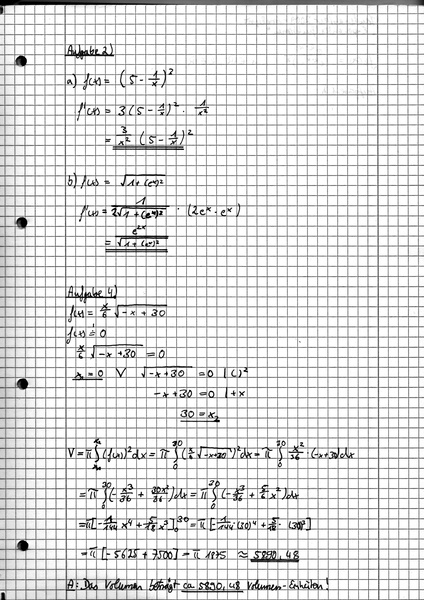 Aufgabe 2)
a) f(x) = (5 - 1/x)³
f'(x) = 3(5 - 1/x)² · 1/x²
= 3/x² (5 - 1/x)²
b) f(x) = √(1 + (eˣ)²)
f'(x) = 1/(2√(1 + (eˣ)²)) · (2eˣ · eˣ)
= e²ˣ/√(1 + (eˣ)²)
Aufgabe 4)
f(x) = x/6 √(-x + 30)
f(x) = 0
x/6 √(-x + 30) = 0
x₁ = 0 ∨ √(-x + 30) = 0 | ( )²
-x + 30 = 0 | + x
30 = x₂
V = π ∫ (f(x))² dx = π ∫₀³⁰ (x/6 √(-x+30))² dx = π ∫₀³⁰ x²/36 · (-x+30) dx
= π ∫₀³⁰ (-x³/36 + 30x²/36) dx = π ∫₀³⁰ (-x³/36 + 5/6 x²) dx
= π [-1/144 x⁴ + 5/18 x³]₀³⁰ = π [-1/144 · (30)⁴ + 5/18 · (30)³]
= π [-5625 + 7500] = π 1875 ≈ 5890,48
A: Das Volumen beträgt ca 5890,48 Volumen-Einheiten!